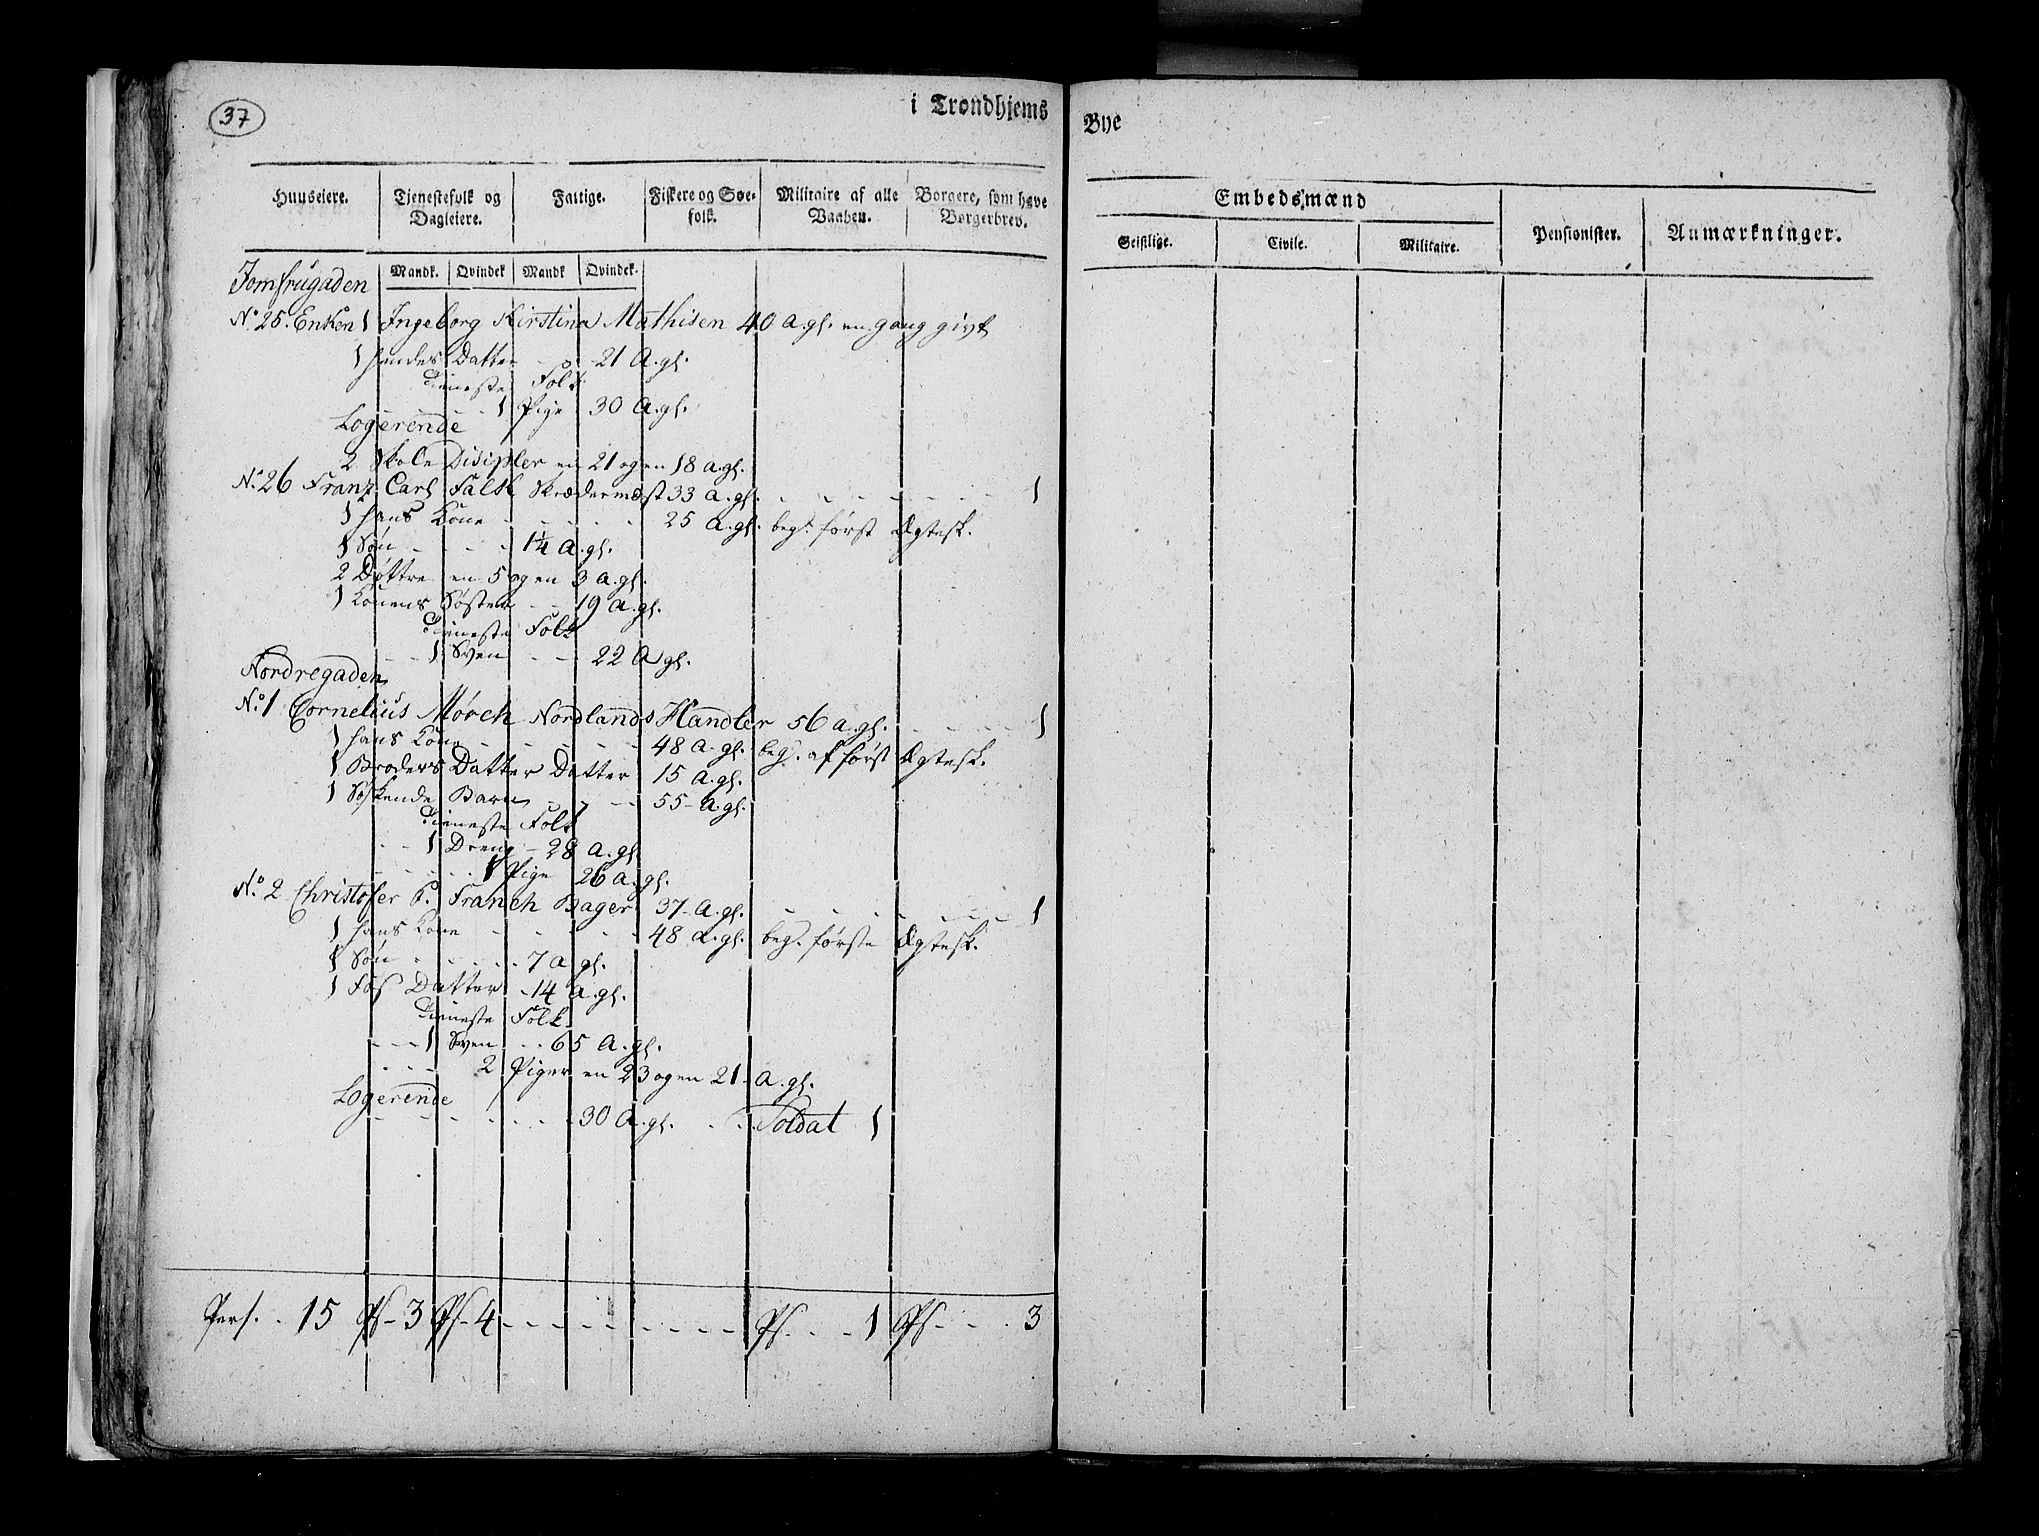 37
i Trondhjems Bye
Huuseiere. Tjenestefolk og Dagleiere. Fattige. Fiskere og Søe-folk. Militaire af alle Vaaben. Borgere, som have Borgerbrev.
Embedsmænd
Geistlige. Civile. Militaire. Pensionister. Anmærkninger.
Mandk. Qvindek Mandk Qvindek.
Jomfrugaden
No 25. Enken 1 Ingeborg Kirstina Mathisen 40 A. gl. en gang givt
1 hendes Datter - - 21 A. gl.
Tieneste Folk
- - - 1 Pige 30 A. gl.
Logerende
2 Skole Disipler en 21 og en 18 a. gl.
No 26 Franz Carl Falck Skrædermest 33 a. gl. - - - - - - - 1
1 hans Kone - - - - - 25 A. gl. beg. først Ægtesk.
1 Søn - - - - 1¼ A. gl.
2 Døttre en 5 og en 3 a. gl.
1 Konens Søster - - 19 a. gl.
Tieneste Folk
- - 1 Sven - - 22 A gl.
Nordregaden
No 1 Cornelius Mørch Nordlands Handler 56 a. gl. - - - - - 1
1 hans Kone - - - - - 48 A. gl. beg. af først Ægtesk.
1 Broders Datter Datter 15 A. gl.
1 Søskende Barn - - - 55 - A. gl.
Tieneste Folk
- - 1 Dreng - 28 A. gl
- - - - - 1 Pige 26 a. gl.
No 2 Christofer P. Franch Bager 37 - A. gl. - - - - - - - 1
1 hans Kone - - - - - 48 A. gl. beg. første Ægtesk.
1 Søn - - - - - 7 a gl.
1 Fos Datter - 14 A. gl.
Tieneste Folk
- - - 1 Sven - - 65 A. gl.
- - - 2 Piger en 23 og en 21 - A. gl.
Logerende
- - - - - - 30 A. gl. - - - Soldat 1
Pers. - 15 Ps - 3 Ps - 4 - - - - - - - - Ps. - - - 1 Ps - - - 3